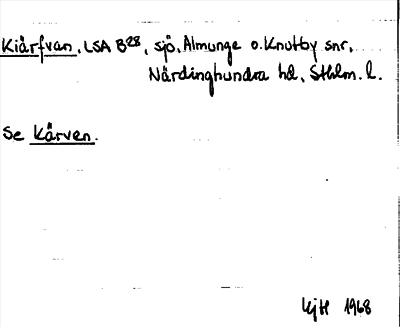 Kiärfvan, LSA B28, sjö, Almunge o. Knutby snr,
Närdinghundra hd, Sthlm. l.
Se Kärven.
KjH 1968